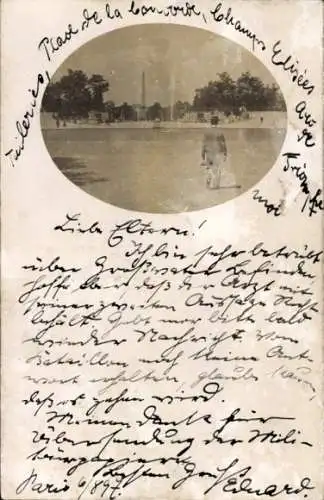 Tuilerie, Place de la Concorde, Champs Elisées Arc de Triomphe
moi
Liebe Eltern!
Ich bin sehr betrübt
über Grossvaters Befinden,
hoffe aber dass der Arzt mit
seiner zweiten Aussage Recht
behält. Gebt mir bitte bald
wieder Nachricht. Vom
Bataillon noch keine Ant-
wort erhalten, glaube kaum,
dass es gehen wird.
Meinen Dank für
Übersendung der Mili-
tärpapiere
Besten Gruss
Paris 6/897. Eduard.